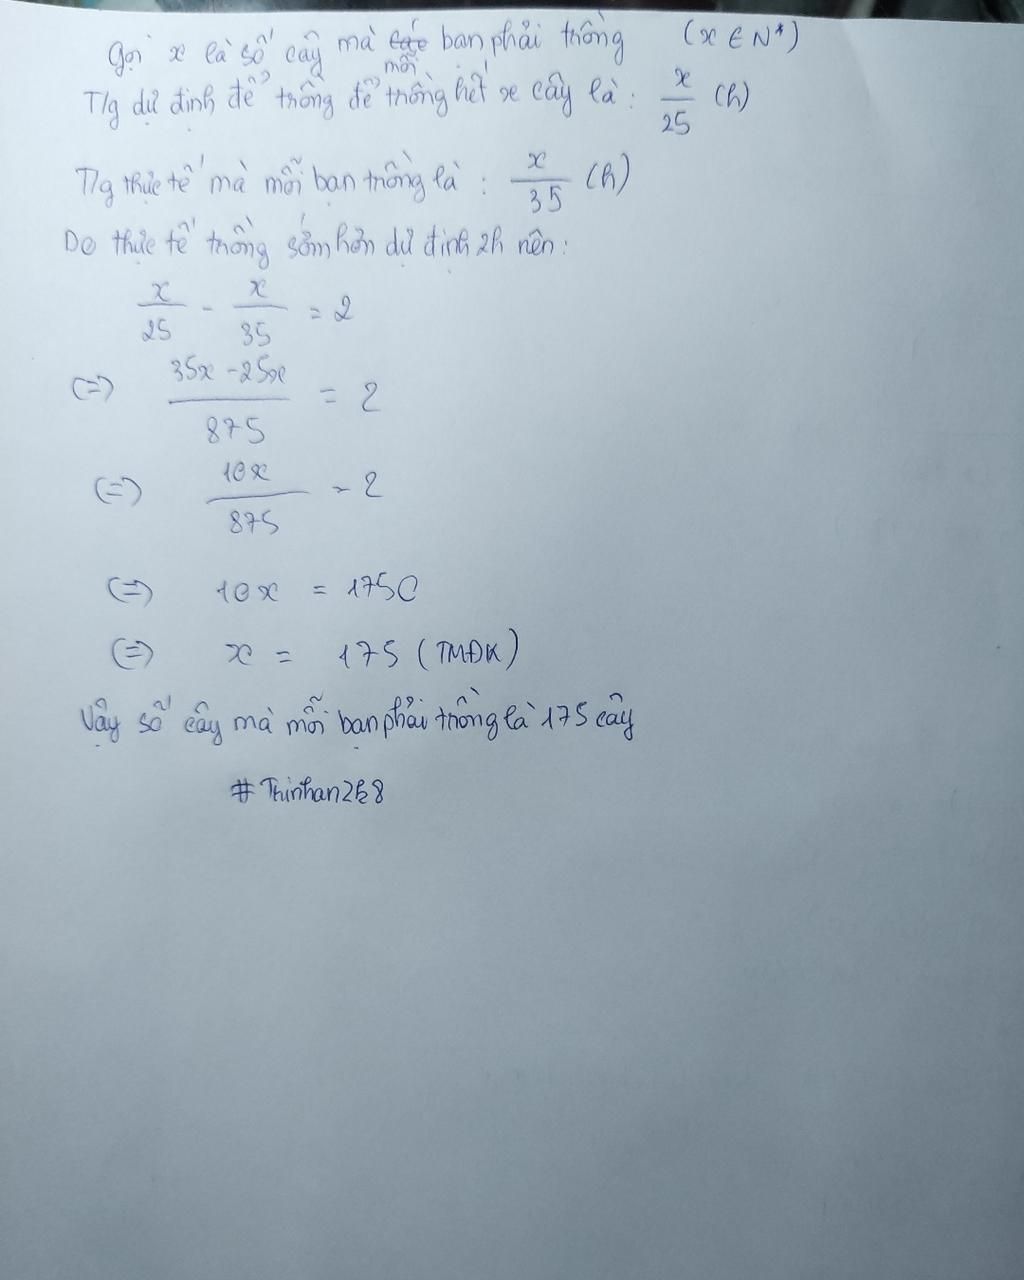 Gọi x là số cây mà mỗi bạn phải trồng (x ∈ N*)
T/g dự định để trồng để trồng hết x cây là: x/25 (h)
T/g thực tế mà mỗi bạn trồng là: x/35 (h)
Do thực tế trồng sớm hơn dự định 2h nên:
x/25 - x/35 = 2
(=) (35x - 25x)/875 = 2
(=) 10x/875 = 2
(=) 10x = 1750
(=) x = 175 (TMĐK)
Vậy số cây mà mỗi bạn phải trồng là 175 cây